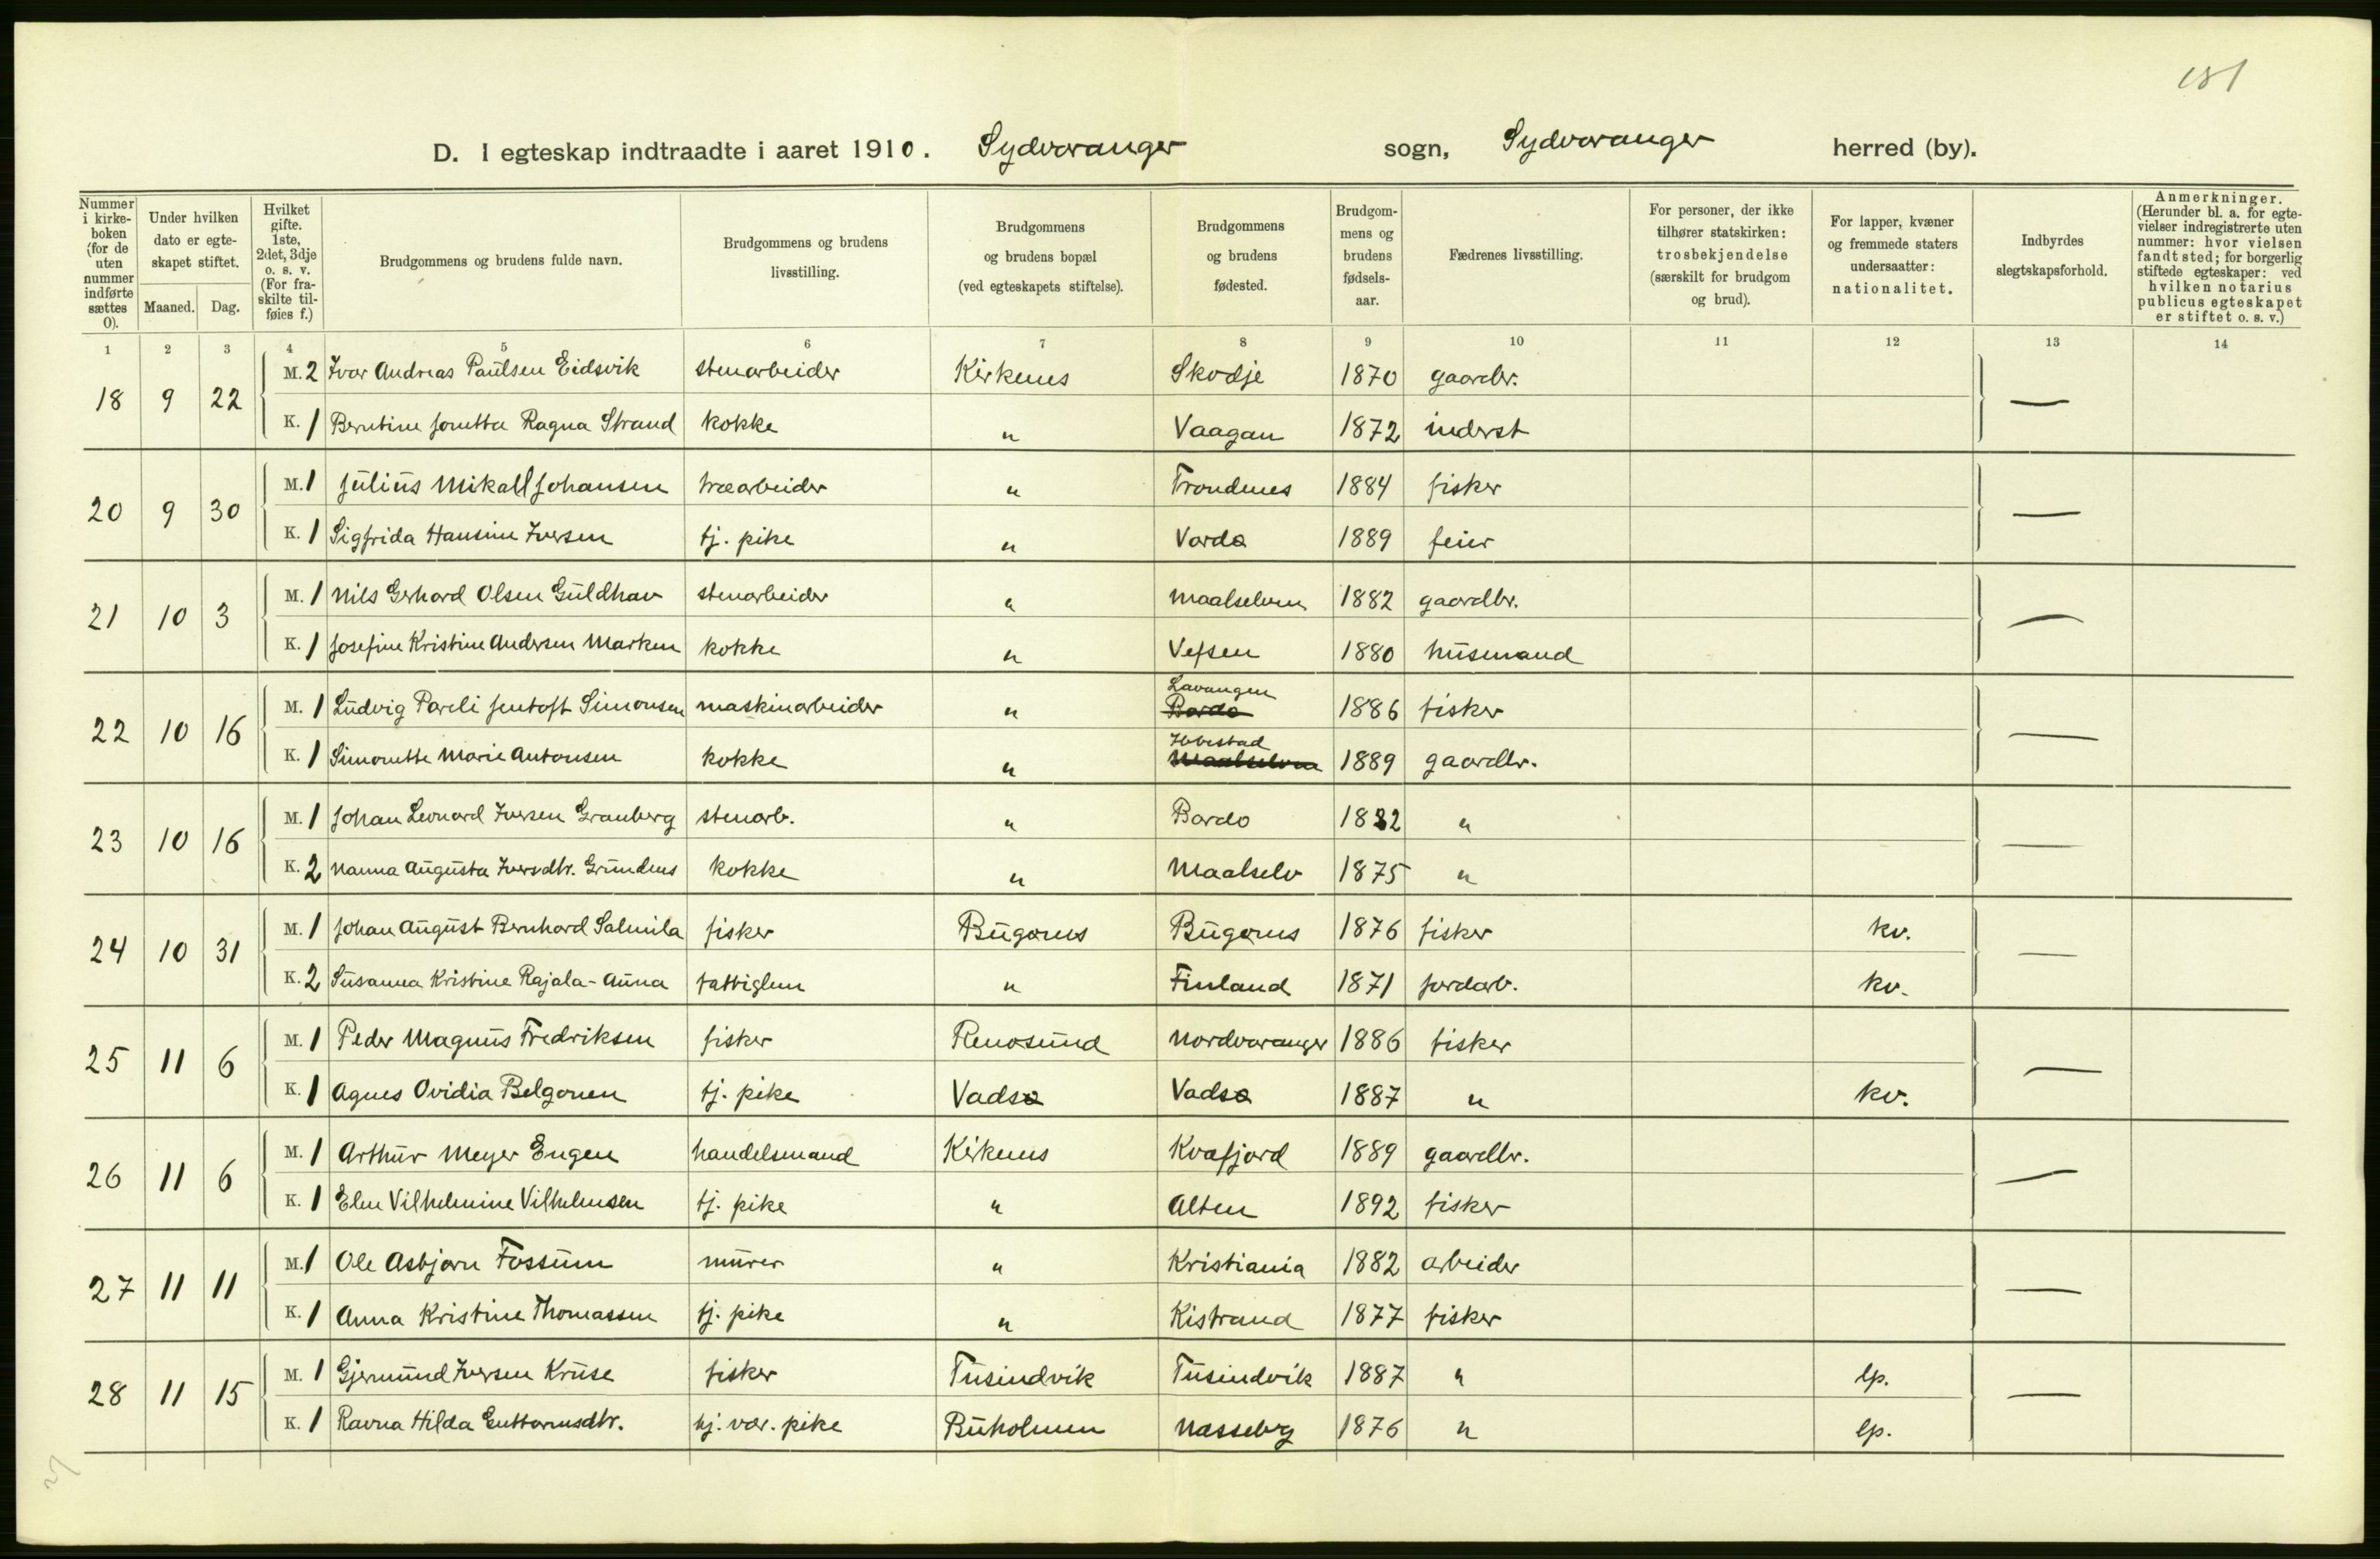 181
D. I egteskap indtraadte i aaret 1910. Sydvaranger sogn, Sydvaranger herred (by).
Nummer i kirkeboken (for de uten nummer indførte sættes 0).
Under hvilken dato er egteskapet stiftet.
Maaned. Dag.
Hvilket gifte. 1ste, 2det, 3dje o. s. v. (For fraskilte tilføies f.)
Brudgommens og brudens fulde navn.
Brudgommens og brudens livsstilling.
Brudgommens og brudens bopæl (ved egteskapets stiftelse).
Brudgommens og brudens fødested.
Brudgommens og brudens fødselsaar.
Fædrenes livsstilling.
For personer, der ikke tilhører statskirken: trosbekjendelse (særskilt for brudgom og brud).
For lapper, kvæner og fremmede staters undersaatter: nationalitet.
Indbyrdes slegtskapsforhold.
Anmerkninger. (Herunder bl. a. for egtevielser indregistrerte uten nummer: hvor vielsen fandt sted; for borgerlig stiftede egteskaper: ved hvilken notarius publicus egteskapet er stiftet o. s. v.)
1 2 3 4 5 6 7 8 9 10 11 12 13 14
18 9 22 M. 2 Ivar Andreas Paulsen Eidsvik stenarbeider Kirkenes Skodje 1870 gaardbr. —
K. 1 Berntine Jonetta Ragna Strand kokke " Vaagan 1872 inderst
20 9 30 M. 1 Julius Mikal Johansen træarbeider " Trondenes 1884 fisker —
K. 1 Sigfrida Hansine Iversen tj. pike " Vardø 1889 feier
21 10 3 M. 1 Nils Gerhard Olsen Guldhav stenarbeider " Maalselven 1882 gaardbr. —
K. 1 Josefine Kristine Andersen Marken kokke " Vefsen 1880 husmand
22 10 16 M. 1 Ludvig Pareli Jentoft Simonsen maskinarbeider " Lavangen Bardo 1886 fisker —
K. 1 Simonette Marie Antonsen kokke " Ibbestad Maalselven 1889 gaardbr.
23 10 16 M. 1 Johan Leonard Iversen Granberg stenarb. " Bardo 1882 " —
K. 2 Nanna Augusta Iversdtr. Grundnes kokke " Maalselv 1875 "
24 10 31 M. 1 Johan August Bernhard Salmila fisker Bugønes Bugønes 1876 fisker kv. —
K. 2 Susanna Kristine Rajala-Auna fattiglem " Finland 1871 jordarb. kv.
25 11 6 M. 1 Peder Magnus Fredriksen fisker Renøsund Nordvaranger 1886 fisker —
K. 1 Agnes Ovidia Belgonen tj. pike Vadsø Vadsø 1887 " kv.
26 11 6 M. 1 Arthur Meyer Engen handelsmand Kirkenes Kvæfjord 1889 gaardbr. —
K. 1 Elen Vilhelmine Vilhelmsen tj. pike " Alten 1892 fisker
27 11 11 M. 1 Ole Asbjørn Fossum murer " Kristiania 1882 arbeider —
K. 1 Anna Kristine Thomassen tj. pike " Kistrand 1877 fisker
28 11 15 M. 1 Gjermund Iversen Kruse fisker Tusindvik Tusindvik 1887 " lp. —
K. 1 Ravna Hilda Guttormsdtr. hj. vær. pike Buholmen Næsseby 1876 " lp.